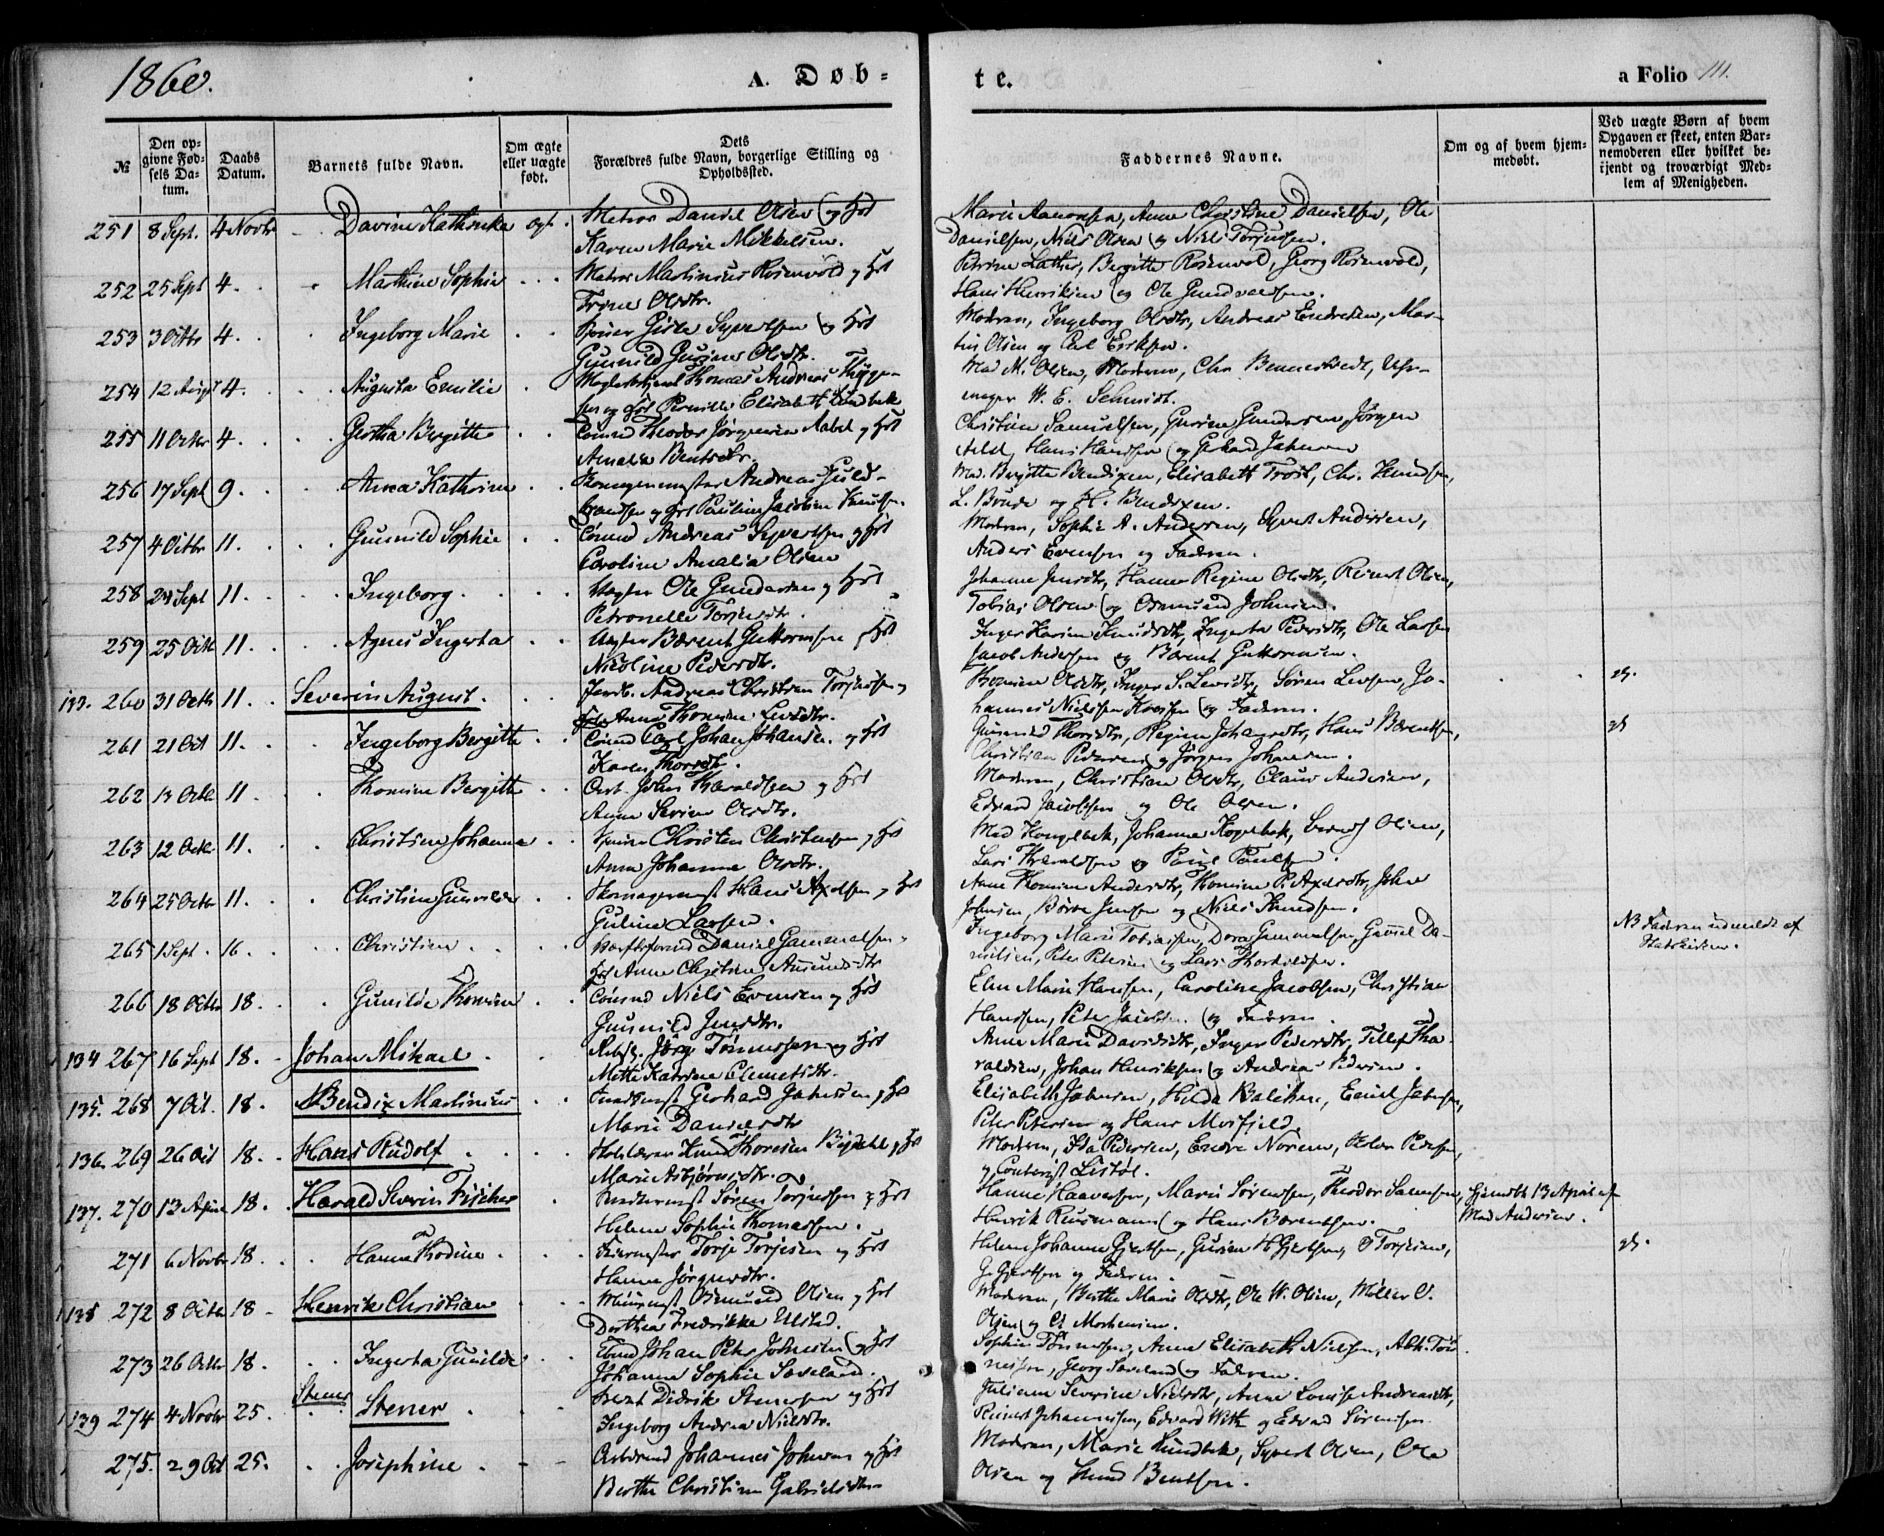 1860.
A. Døb-
te.
a Folio 111.
№
Den op-
givne Fød-
sels Da-
tum.
Daabs
Datum.
Barnets fulde Navn.
Om ægte
eller uægte
født.
Dets
Forældres fulde Navn, borgerlige Stilling og
Opholdssted.
Faddernes Navne.
Om og af hvem hjem-
medøbt.
Ved uægte Børn af hvem
Opgaven er skeet, enten Bar-
nemoderen eller hvilket be-
kjendt og troværdigt Med-
lem af Menigheden.
251 8 Sept. 4 Novbr Davine Kathrinke ægt. Matros Daniel Olsen og Hst
Karen Marie Mikkelsen.
Marie Aanonsen, Anne Christine Danielsen, Ole
Danielsen, Niels Olsen og Niels Torjussen.
252 25 Sept 4. Marthine Sophie Matros Martinius Rosenvold og Hst
Trine Olsdtr.
Bergitte Rosenvold, Georg Rosenvold,
Hans Henriksen og Ole Gundvaldsen.
253 3 Octbr 4. Ingeborg Marie Gisle Syvertsen og Hst
Gunnild Olsdtr.
Modren, Ingeborg Olsdtr, Andreas Endresen, Mar-
tin Olsen og Carl Eriksen.
254 12 Augst 4. Augusta Emilie Thomas Andreas Thyge-
sen og Pernille Elisabeth Lundbek
Mad M. Olsen, Modren, Chr. Bennestvedt,
W. E. Schmidt.
255 11 Octbr 4. Gertha Bergitte Theodor Jørgensen Aabel og Hst
Amalia Bentsdtr.
Christine Samuelsen, Gurine Gundersen, Jørgen
Hans Hansen og Gerhard Jahnsen
256 17 Sept 9. Anna Kathrine Andreas Guld-
brandsen og Pauline Jacobine Knutsen.
Mad. Birgitte Bendixen, Elisabeth Trosk, Chr. Knudsen,
L. Bonde og H. Bendixen.
257 4 Octbr 11. Gunnild Sophie Andreas Syvertsen og Hst
Caroline Amalia Olsen
Modren, Sophie A. Andersen, Syvert Andersen,
Anders Evensen og Fadren.
258 29 Sept 11. Ingeborg Ole Gundersen og Hst
Petronelle Torjesdtr.
Johanne Jensdtr, Hanne Regine Olsdtr, Reinert Olsen,
Tobias Olsen og Osmund Johnsen.
259 25 Octbr 11. Agnes Ingerta Bærent Guttormsen og Hst
Nicoline Pedersdtr.
Inger Karine Knudsdtr, Ingerta Pedersdtr, Ole Larsen
Jacob Andersen og Bærent Guttormsen.
133. 260 31 Octbr 11. Severin August. Andreas Christian Torjussen og
Anne Thomine Levisdtr.
Thomine Olsdtr, Inger S. Levisdtr, Søren Levsen, Jo-
hannes Nielssen og Fadren.
261 21 Oct 11. Ingeborg Bergitte Carl Johan Johansen og Hst
Karen Thorsdtr.
Gunnild Thorsdtr, Regine Johansdtr, Hans Bærentsen,
Christian Pedersen og Jørgen Johansen.
262 13 Octbr 11. Thomine Bergitte John Haraldsen og Hst
Anne Olsdtr.
Modren, Christiane Olsdtr, Claus Andersen,
Edvard Jacobsen og Ole Olsen.
263 12 Octbr 11. Christine Johanne Christen Christensen og Hst
Anne Johanne Olsdtr.
Johanne Kogebek, Bernt Olsen,
Lars Haraldsen og Poul Poulsen.
264 25 Octbr 11. Christine Gunnilde Skomagermst Hans Axelsen og Hst
Guline Larsen.
Anne Thomine Andersdtr, Thomine P. Axelsdtr, John
Johnsen, Børre Jensen og Niels Knudsen.
265 1 Sept. 16. Christine Daniel Gammelsen
Anne Christine Aasmundsdtr
Ingeborg Marie Tobiassen, Dorthe Gammelsen, Gamel Da-
nielsen, Peter Petersen og Lars Thorkildsen.
NB Fadren udmeldt af
Statskirken.
266 18 Octbr 18. Gunilde Thomine Niels Evensen og Hst
Gunnild Jensdtr.
Elen Marie Hansen, Caroline Jacobsen, Christian
Hansen, Peter Jacobsen og Fadren.
134 267 16 Sept 18. Johan Mikael Jørg. Tønnessen og Hst
Mette Katrine Clemetsdtr.
Anne Marie Davidsdtr, Inger Pedersdtr, Tellef Tha-
raldsen, Johan Henriksen og Andreas Pedersen.
135. 268 7 Oct. 18. Bendix Martinius Gerhard Jahnsen og Hst
Marie Danielsdtr
Elisabeth Jahnsen, Hilda Balchen, Emil Jahnsen,
Peter Petersen og Hans Morfjeld.
136. 269 26 Oct 18. Hans Rudolf Knud Thomsen og Hst
Marie Asbjørnsdtr.
Modren, Ida Pedersen, Endre Noren, Peder Pedersen,
og Contorist Listøl.
137. 270 13 April 18. Harald Severin Fischer Søren Torjussen og Hst
Helene Sophie Thomassen.
Hanne Haavorsen, Marie Sørensen, Theodor Samsen,
Henrik Reusmann og Hans Bærentsen.
Hjemdbt. 13 April af
Mad Andersen.
271 6 Novbr 18. Hanna Thodine Torje Torjesen og Hst
Hanne Jørgensdtr.
Helene Johanne Gjertsen, Gurine H. Gjertsen, O Torjesen,
G. Gjertsen og Fadren.
138 272 8 Octbr 18 Henrik Christian Osmund Olsen og Hst
Dorthea Fredrikke Ulstad.
Modren, Berthe Marie Olsdtr, Ole W. Olsen, Møller O.
Olsen og A Mortensen.
273 26 Octbr 18. Ingerta Gunilde Johan Peter Johnsen og Hst
Johanne Sophie Saveland.
Sophie Tønnessen, Anne Elisabeth Nielsen, Abr. Tøn-
nessen, Georg Saveland og Fadren.
139 274 4 Novbr 25. Stener Stener Didrik Stenersen og Hst
Ingeborg Andrea Nielsdtr.
Juliane Severine Nielsdtr, Anne Lovise Andreasdtr,
Reinert Johannesen, Edvard Witz og Edvard Sørensen
275. 29 Oct 25. Josephine Johannes Johnsen og Hst
Berthe Christine Gabrielsdtr
Modren, Marie Lundbek, Syvert Olsen, Ole
Olsen og Knud Bentsen.